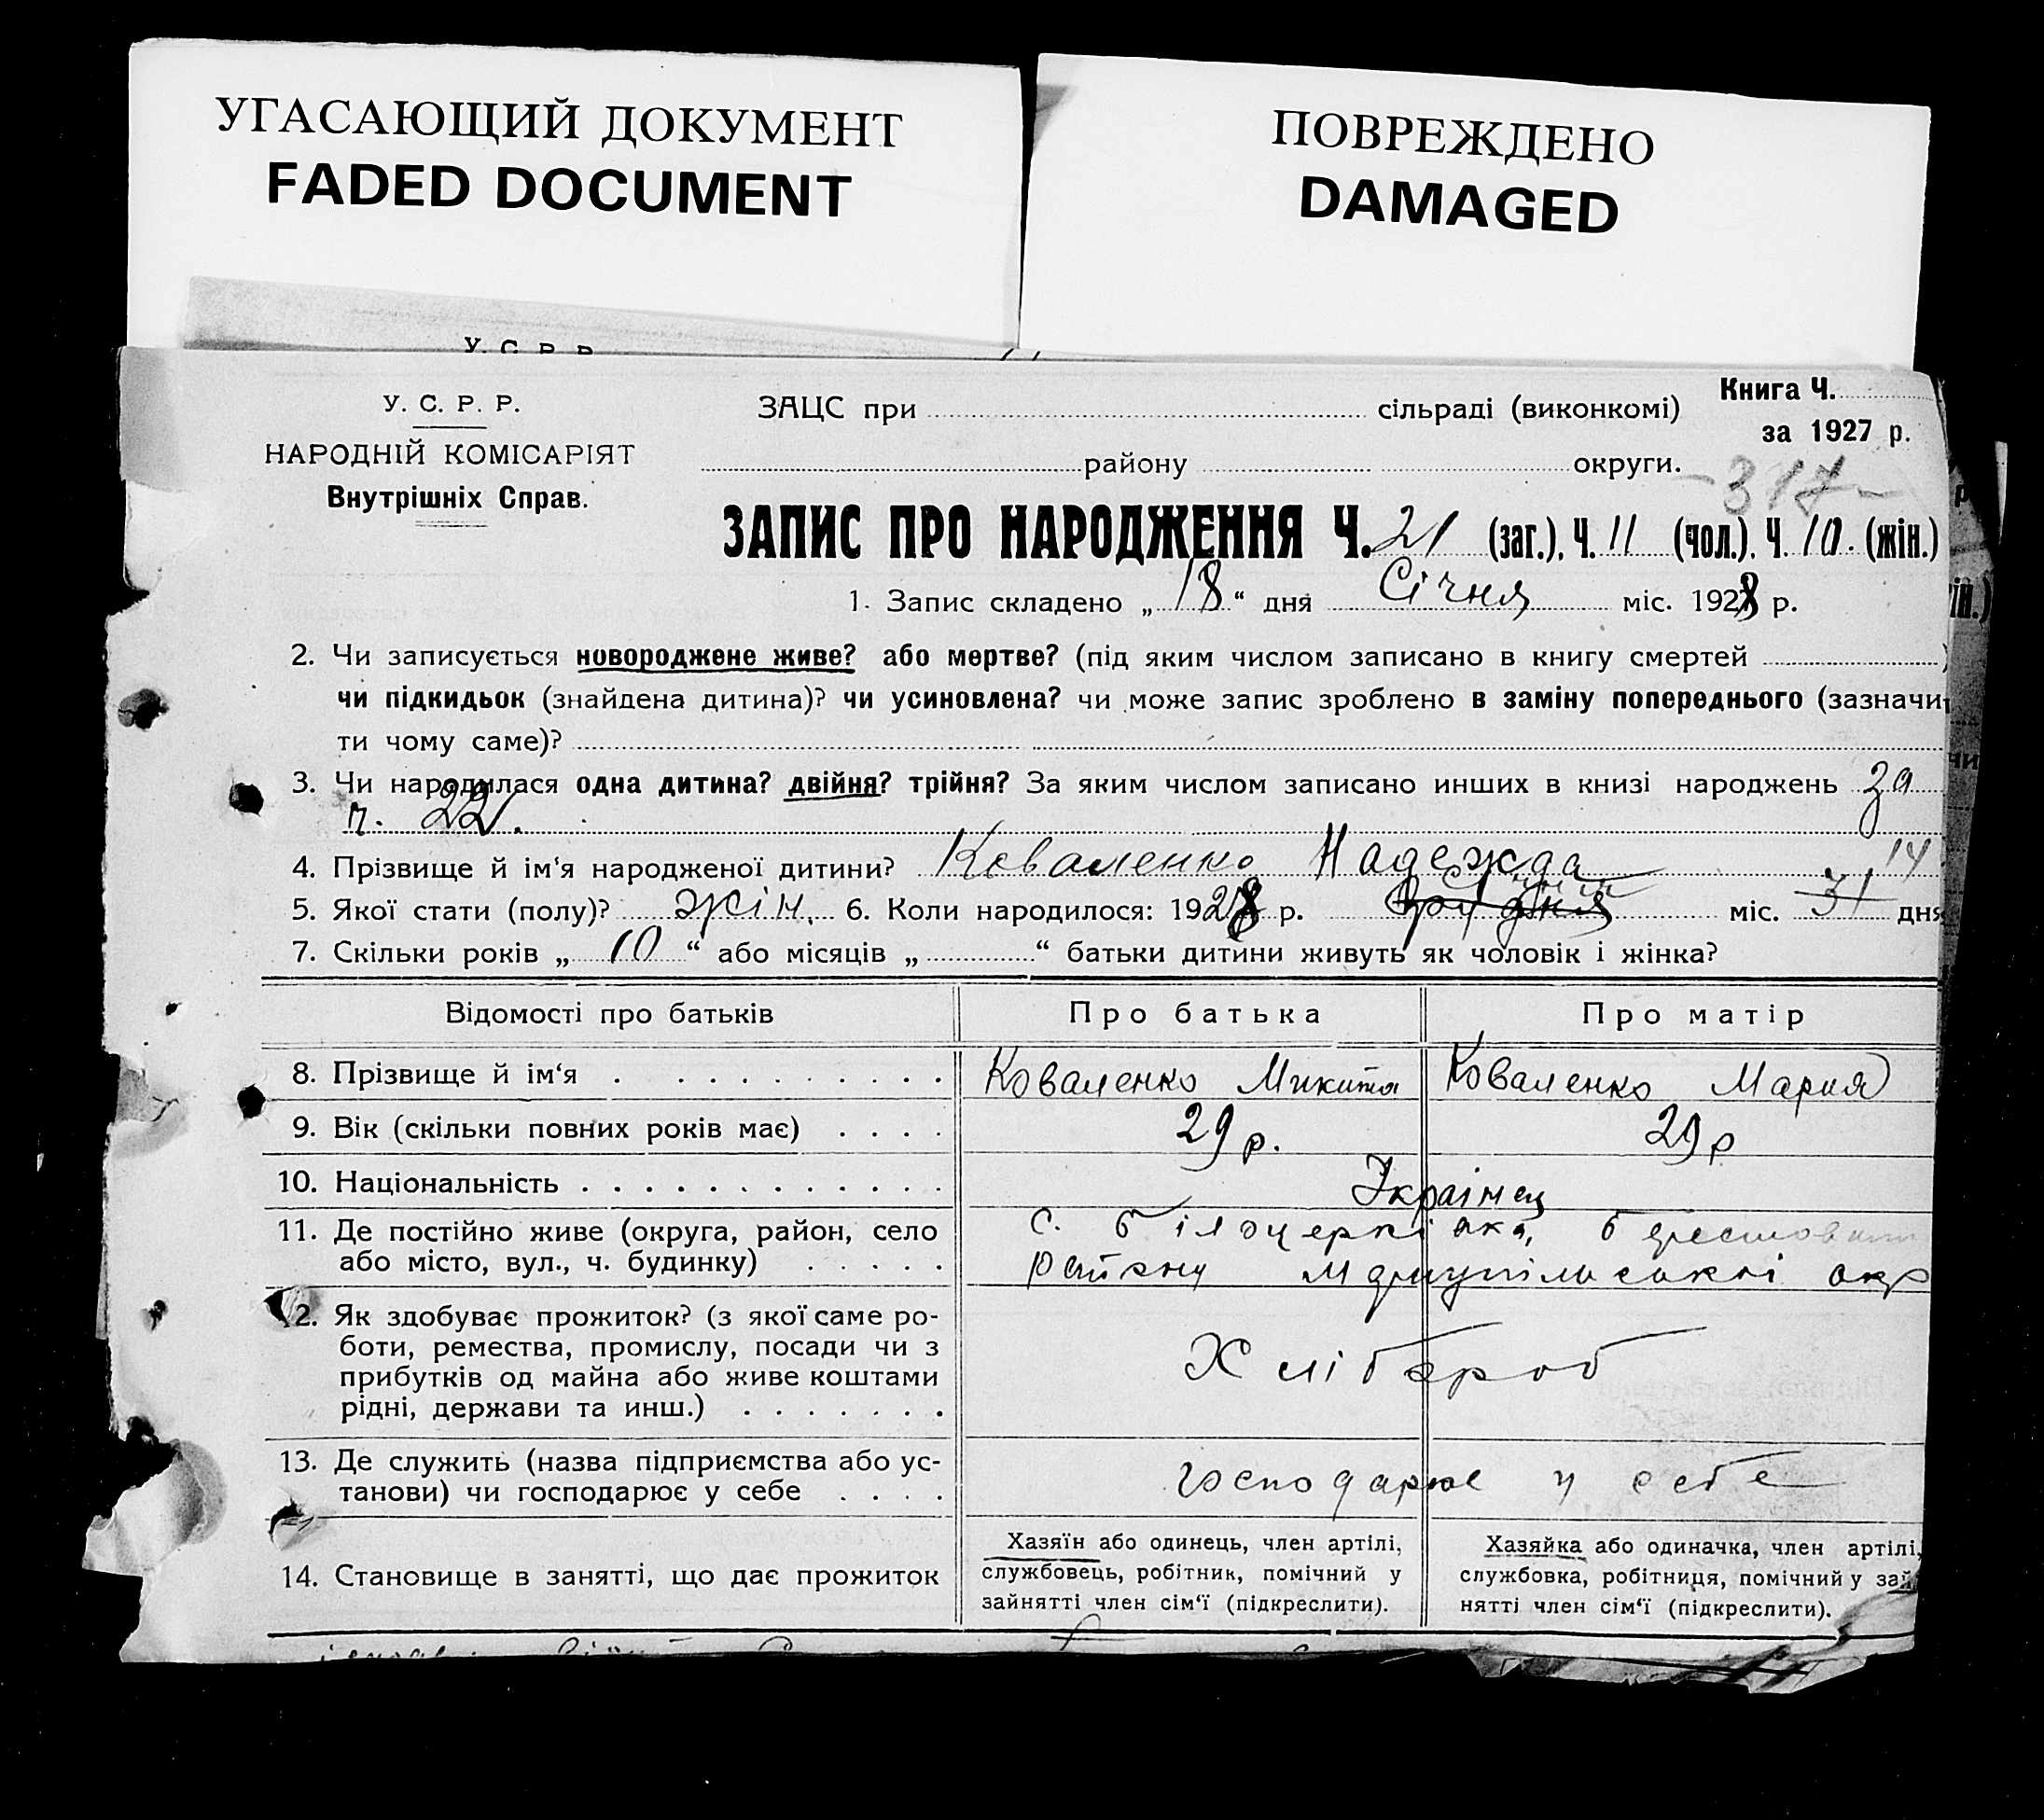 УГАСАЮЩИЙ ДОКУМЕНТ
FADED DOCUMENT
ПОВРЕЖДЕНО
DAMAGED
У. С. Р. Р.
У. С. Р. Р.
НАРОДНІЙ КОМІСАРІЯТ
Внутрішніх Справ.
Книга Ч.
за 1927 р.
ЗАЦС при сільраді (виконкомі)
району округи.
317
ЗАПИС ПРО НАРОДЖЕННЯ Ч. 21 (заг.), Ч. 11 (чол.), Ч. 10. (жін.)
1. Запис складено „18“ дня Січня міс. 1928 р.
2. Чи записується новороджене живе? або мертве? (під яким числом записано в книгу смертей )
чи підкидьок (знайдена дитина)? чи усиновлена? чи може запис зроблено в заміну попереднього (зазначи-
ти чому саме)?
3. Чи народилася одна дитина? двійня? трійня? За яким числом записано инших в книзі народжень за
ч. 22.
4. Прізвище й ім‘я народженої дитини? Коваленко Надежда
14
5. Якої стати (полу)? жін. 6. Коли народилося: 1928 р. Грудня міс. 31 дня
7. Скільки років „10“ або місяців „ “ батьки дитини живуть як чоловік і жінка?
Відомості про батьків Про батька Про матір
8. Прізвище й ім‘я Коваленко Микита Коваленко Мария
9. Вік (скільки повних років має) 29 р. 29 р
10. Національність Українец
11. Де постійно живе (округа, район, село с. Білоцерківка,
або місто, вул., ч. будинку) Маріупільської окр
12. Як здобуває прожиток? (з якої саме ро-
боти, ремества, промислу, посади чи з Хлібороб
прибутків од майна або живе коштами
рідні, держави та инш.)
13. Де служить (назва підприємства або ус- господарює у себе
танови) чи господарює у себе
14. Становище в занятті, що дає прожиток
Хазяїн або одинець, член артілі,
службовець, робітник, помічний у
зайнятті член сім‘ї (підкреслити).
Хазяйка або одиначка, член артілі,
службовка, робітниця, помічний у зай-
нятті член сім‘ї (підкреслити).